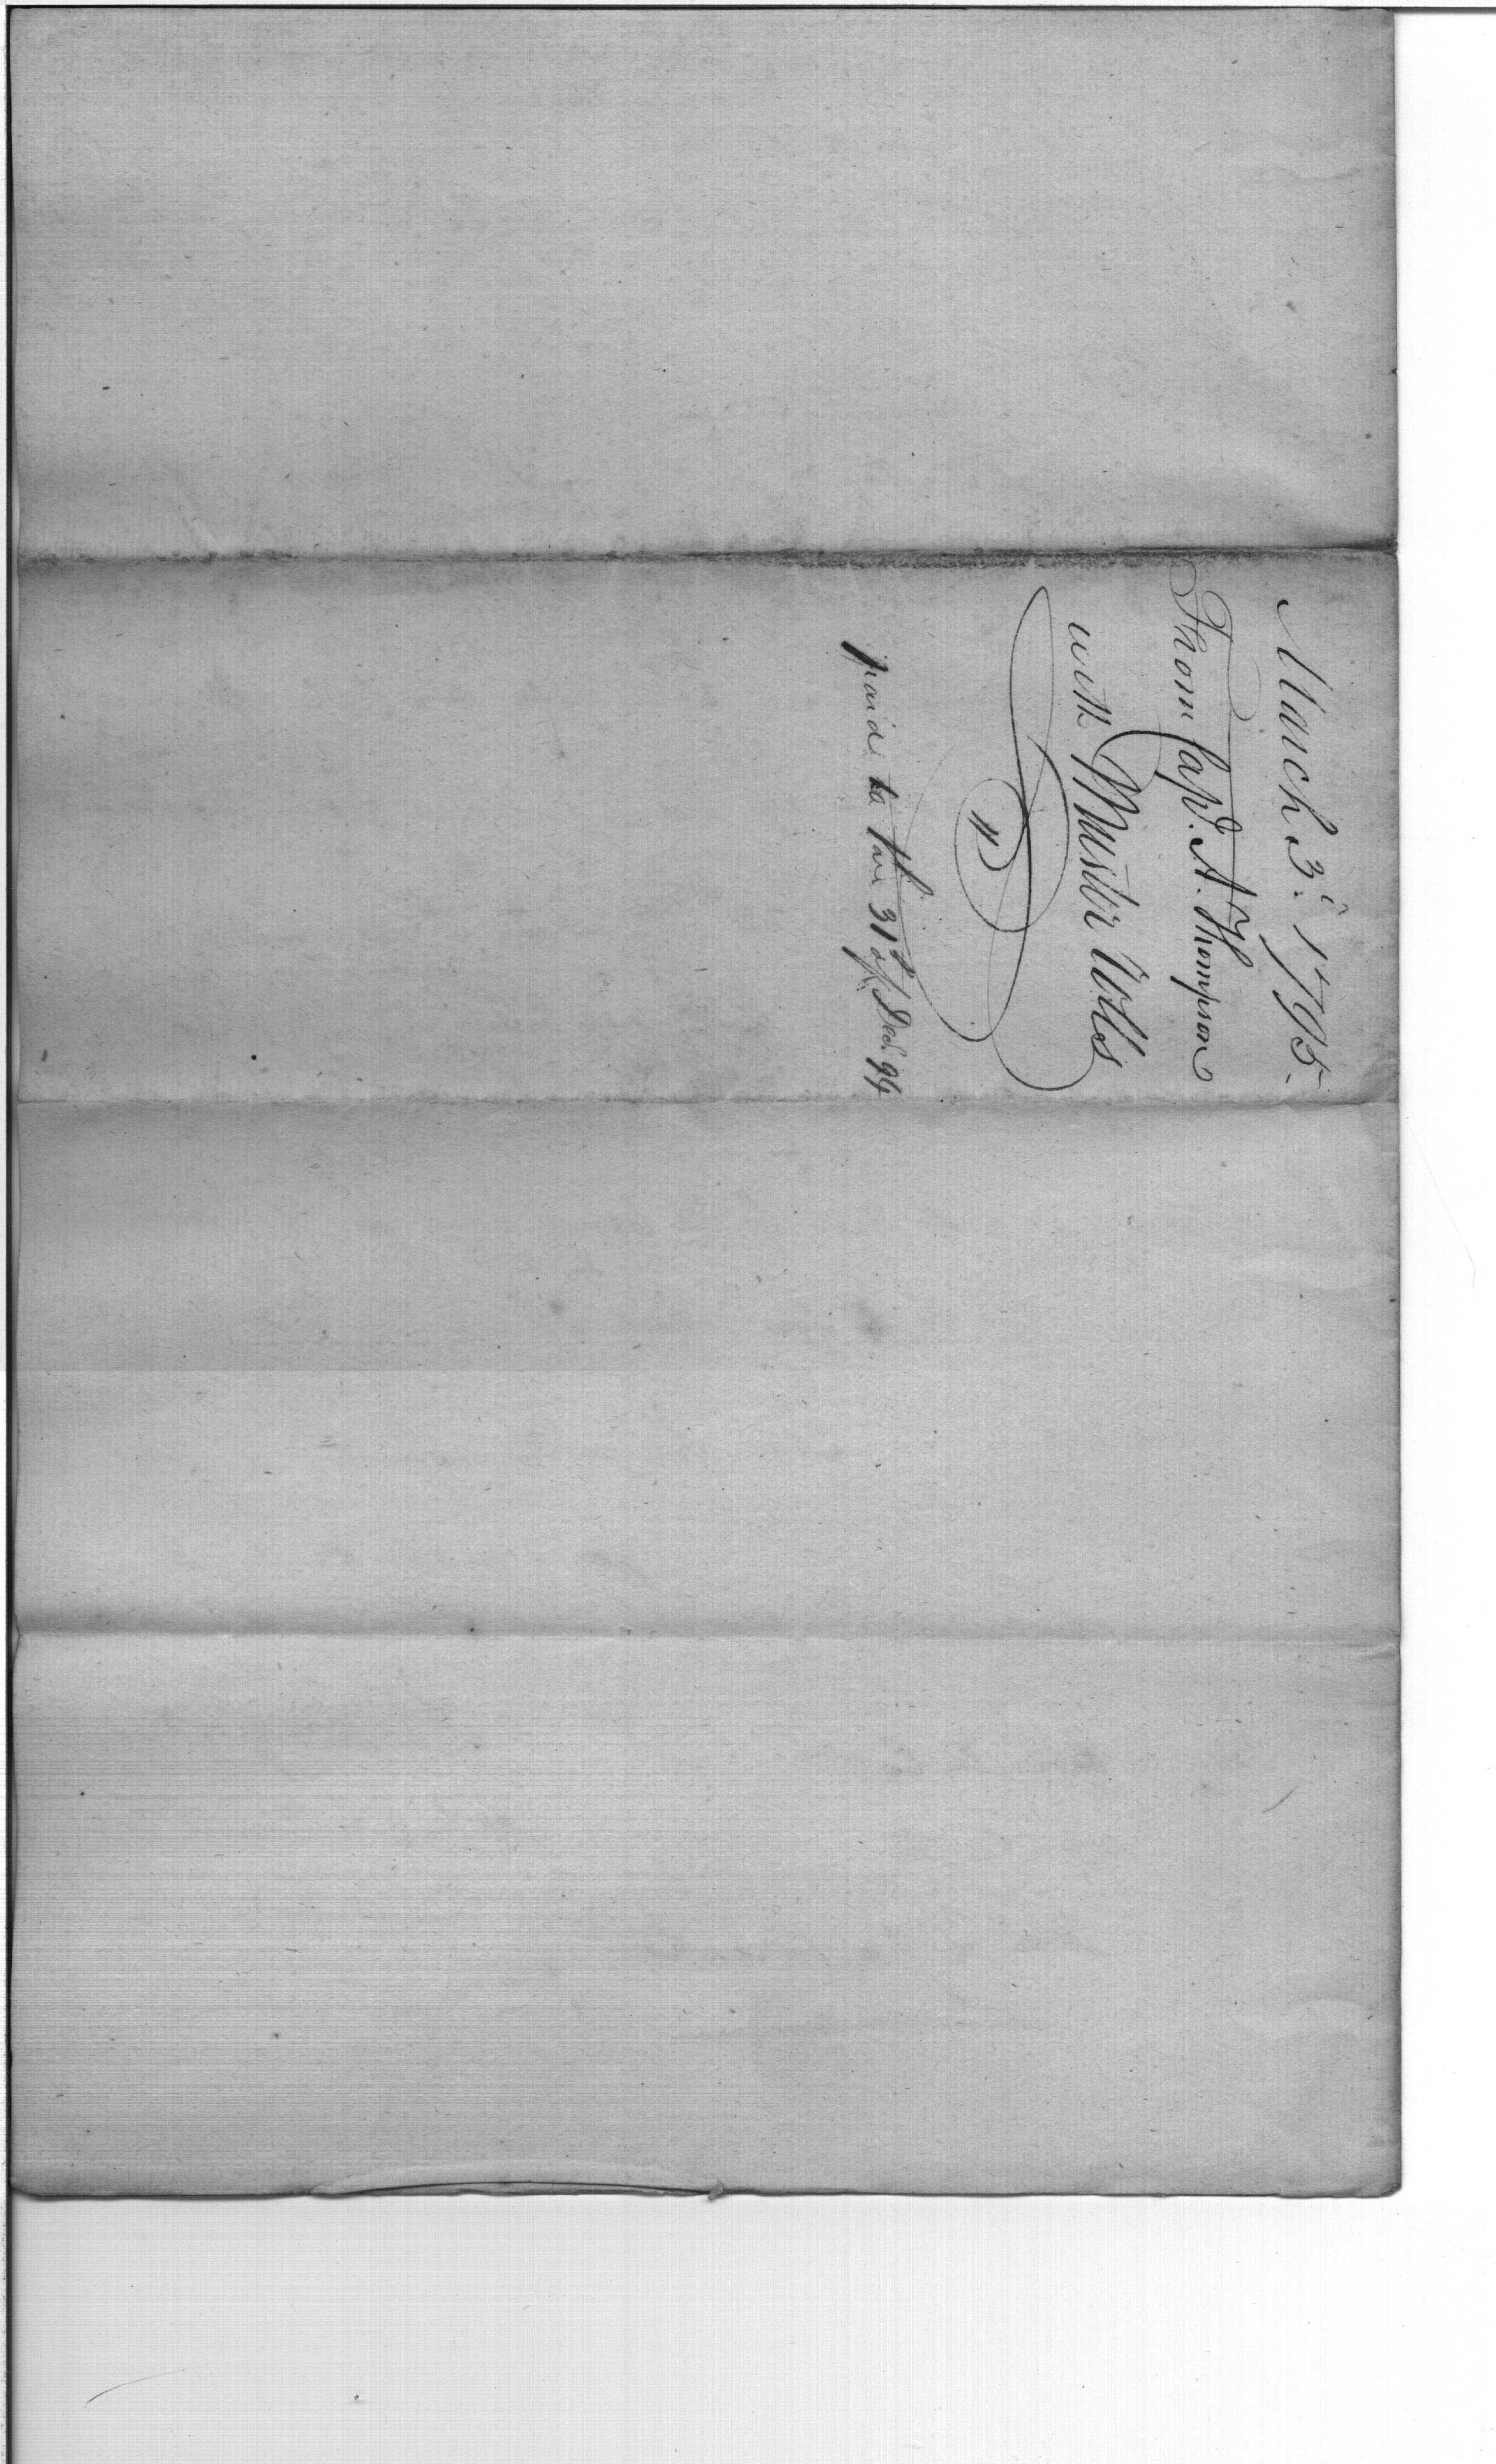 March 3d. 1795.
From Capt. A. Thompson
with Muster Rolls
paid to the 31st of Dec. 94